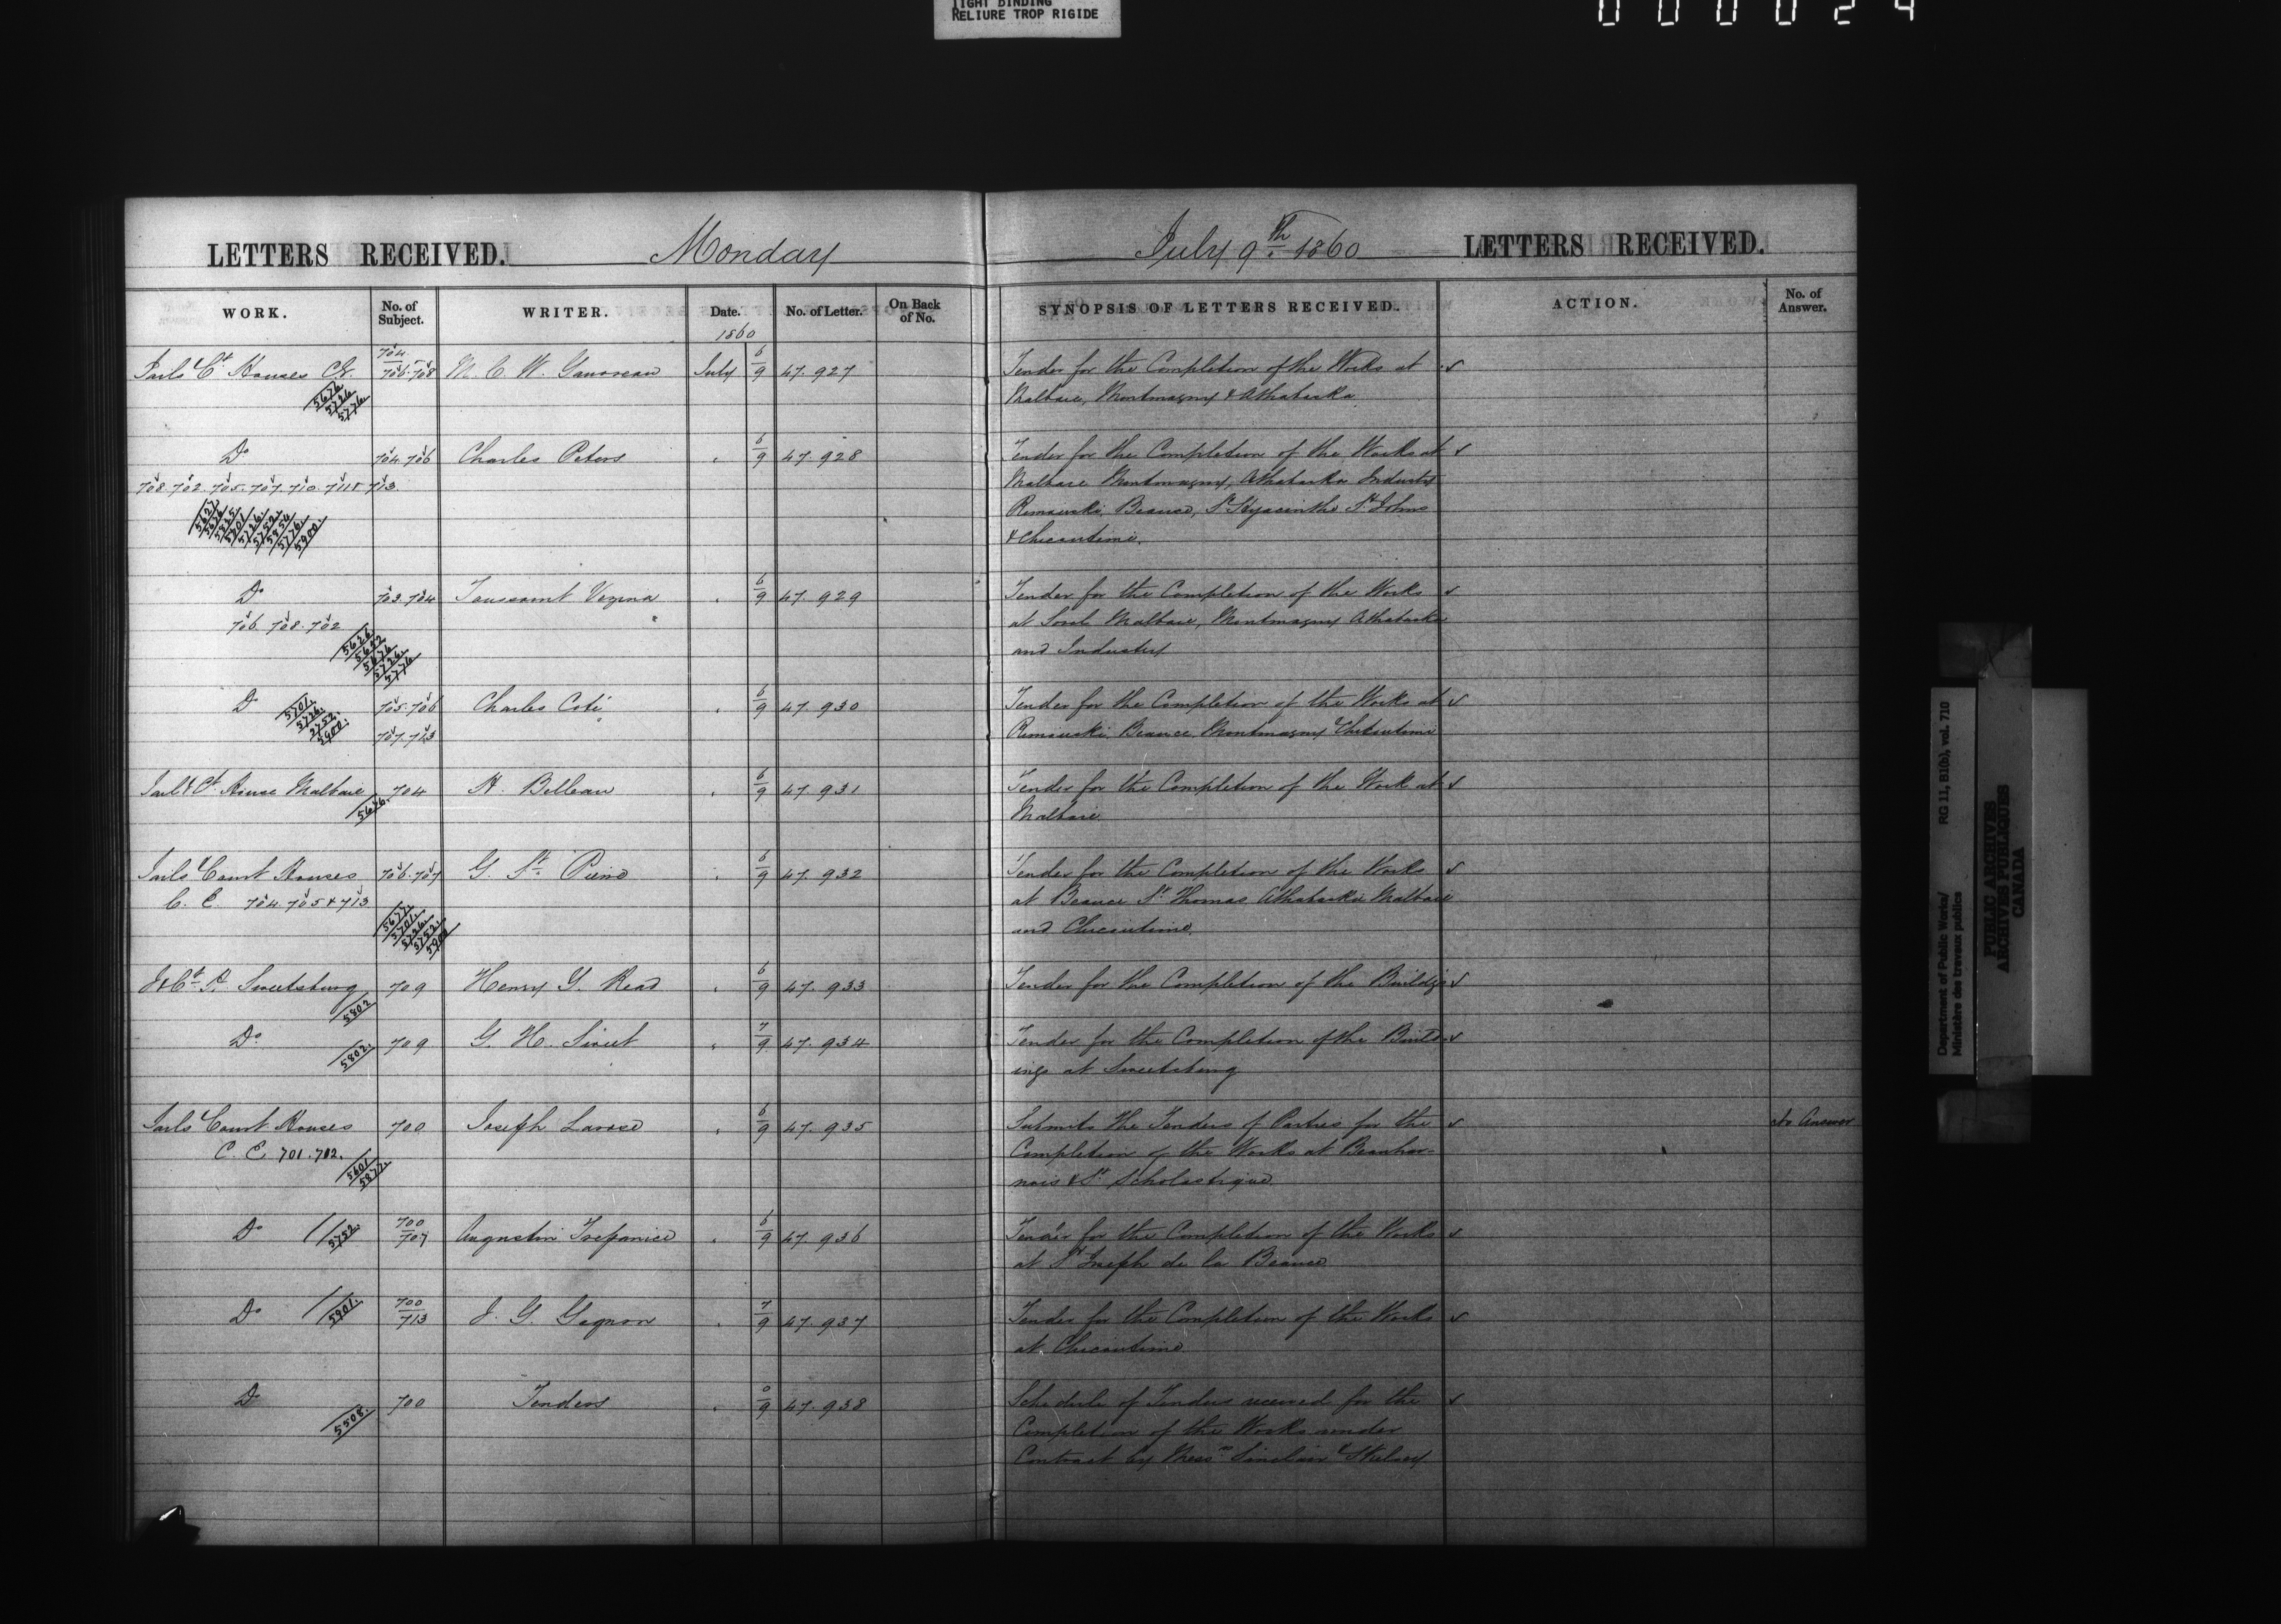 TIGHT BINDING
RELIURE TROP RIGIDE
000024
LETTERS RECEIVED. Monday
July 9th 1860 LETTERS RECEIVED.
WORK. No. of Subject. WRITER. Date. No. of Letter. On Back of No. SYNOPSIS OF LETTERS RECEIVED. ACTION. No. of Answer.
1860
Jails Ct Houses 704 706.708 July 6/9 47.927 Tender for the Completion of the Works at
5676 5726 5776 Malbaie, Montmagny & Athabaska
Do 704.706 Charles Peters 6/9 47.928 Tender for the Completion of the Works at
708.702.705.707.710.711 & 713 Malbaie Montmagny, Athabaska Industry
Rimouski, Beauce, St Hyacinthe St Johns
& Chicoutimi.
Do 703.704 Toussaint Vezina 6/9 47.929 Tender for the Completion of the Works
706.708.702 at Sorel Malbaie, Montmagny Athabaska
5626 5652 5676 5726 5776 and Industry
Do 5701. 5726. 2752. 5900. 705.706 Charles Coté 6/9 47.930 Tender for the Completion of the Works at
707.713 Rimouski, Beauce, Montmagny Chicoutimi
Jail & Ct House Malbaie 704 H. Belleau 6/9 47.931 Tender for the Completion of the Work at
5676. Malbaie.
Jails & Court Houses 706.707 G. St. Pierre 6/9 47.932 Tender for the Completion of the Works
C. E. 704.705 & 713 at Beauce St Thomas Athabaska Malbaie
5677. 5701. 5726. 5752. 5900 and Chicoutimi.
J & Ct H. Sweetsburg 709 Henry G. Read 6/9 47.933 Tender for the Completion of the Buildgs
5802
Do 5802. 709 G. H. Sweet 7/9 47.934 Tender for the Completion of the Build-
ings at Sweetsburg
Jails & Court Houses 700 Joseph Larose 6/9 47.935 Submits the Tenders of Parties for the No Answer
C. E. 701.712. Completion of the Works at Beauhar-
5601 5877. nois & St Scholastique.
Do 5752. 700/707 Augustin Trepanier 6/9 47.936 Tender for the Completion of the Works
at St Joseph de la Beauce
Do 5901. 700/713 J. G. Gagnon 7/9 47.937 Tender for the Completion of the Works
at Chicoutimi.
Do 5508. 700 Tenders 0/9 47.938 Schedule of Tenders received for the
Completion of the Works under
Contract by Messrs Sinclair & Skelsey
Department of Public Works/ RG 11, B1(b), vol. 710
Ministère des travaux publics
PUBLIC ARCHIVES
ARCHIVES PUBLIQUES
CANADA